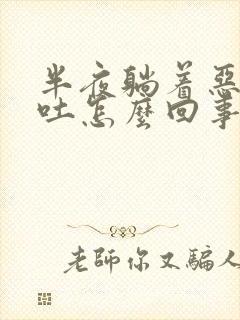 半夜躺着惡
吐怎麽回事
老師你又騙人